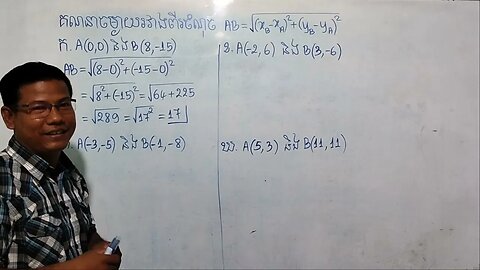 គណនាចម្ងាយរវាងពីរចំណុច AB=√(x_B-x_A)²+(y_B-y_A)²
ក. A(0,0) និង B(8,-15)
AB=√(8-0)²+(-15-0)²
=√8²+(-15)²=√64+225
=√289=√17²=17
A(-3,-5) និង B(-1,-8)
ខ. A(-2,6) និង B(3,-6)
ឃ. A(5,3) និង B(11,11)